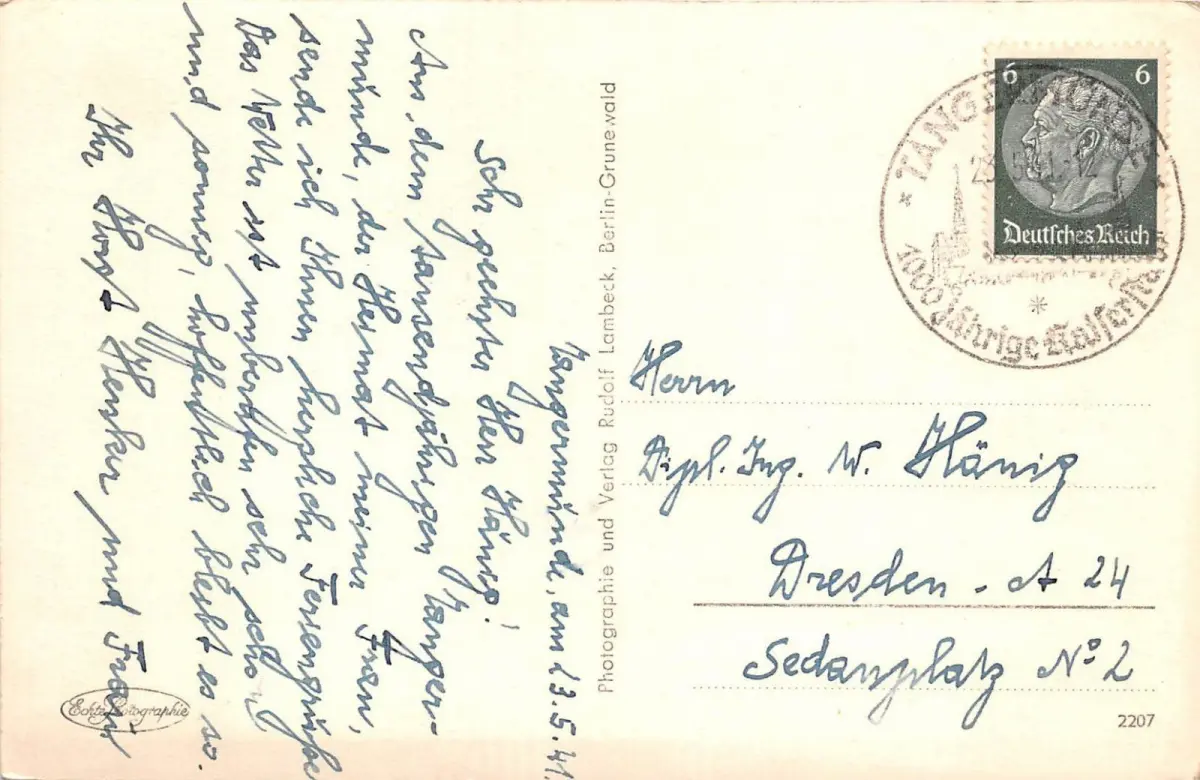 Tangermünde, am 23.5.41.
Sehr geehrter Herr Hänig!
Aus dem tausendjährigen Tanger-
münde, der Heimat meiner Frau,
sende ich Ihnen herzliche Feriengrüße
Das Wetter ist unberufen sehr schön
und sonnig, hoffentlich bleibt es so.
Ihr Horst Hensker und Frau
Echte Photographie
Photographie und Verlag Rudolf Lambeck, Berlin-Grunewald
6 6
Deutsches Reich
TANGERMÜNDE
1000 Jährige Kaiserstadt
Herrn
Dipl. Ing. W. Hänig
Dresden - A 24
Sedanplatz No 2
2207